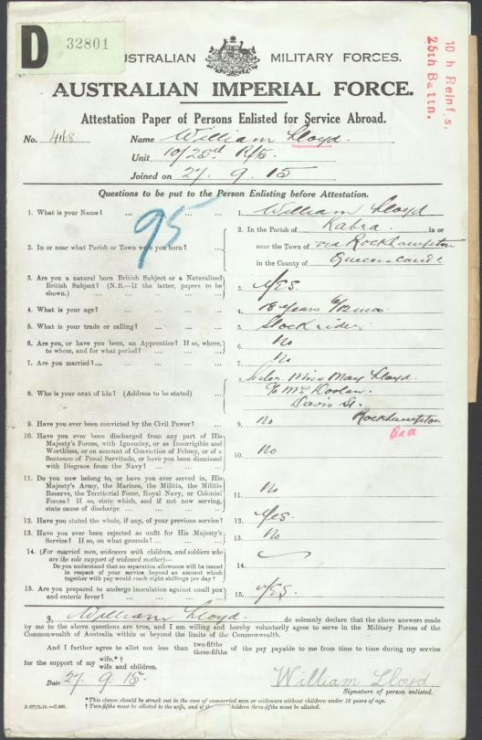 D 32801
AUSTRALIAN MILITARY FORCES.
10 h Reinf s.
25th Battn.
AUSTRALIAN IMPERIAL FORCE.
Attestation Paper of Persons Enlisted for Service Abroad.
No. 4168 Name William Lloyd.
Unit 10/25th R/S.
Joined on 27. 9. 15
Questions to be put to the Person Enlisting before Attestation.
95
1. What is your Name? ... 1. William Lloyd
2. In or near what Parish or Town were you born? ... 2. In the Parish of Kabra. in or
near the Town of via Rockhampton
in the County of Queensland
3. Are you a natural born British Subject or a Naturalized
British Subject? (N.B.—If the latter, papers to be
shown.) 3. Yes.
4. What is your age? ... 4. 18 years 6/12 mos.
5. What is your trade or calling? ... 5. Stockrider
6. Are you, or have you been, an Apprentice? If so, where,
to whom, and for what period? ... 6. No
7. Are you married? ... 7. No
8. Who is your next of kin? (Address to be stated) ... 8. Sister. Miss May Lloyd.
c/o Mr Doolan.
Davis St.
Rockhampton
9. Have you ever been convicted by the Civil Power? ... 9. No
10. Have you ever been discharged from any part of His
Majesty's Forces, with Ignominy, or as Incorrigible and
Worthless, or on account of Conviction of Felony, or of a
Sentence of Penal Servitude, or have you been dismissed
with Disgrace from the Navy? ... 10. No
11. Do you now belong to, or have you ever served in, His
Majesty's Army, the Marines, the Militia, the Militia
Reserve, the Territorial Force, Royal Navy, or Colonial
Forces? If so, state which, and if not now serving,
state cause of discharge ... 11. No
12. Have you stated the whole, if any, of your previous service? 12. Yes.
13. Have you ever been rejected as unfit for His Majesty's
Service? If so, on what grounds? ... 13. No
14. (For married men, widowers with children, and soldiers who
are the sole support of widowed mother)—
Do you understand that no separation allowance will be issued
in respect of your service beyond an amount which
together with pay would reach eight shillings per day? 14.
15. Are you prepared to undergo inoculation against small pox
and enteric fever? ... 15. Yes.
I, William Lloyd. do solemnly declare that the above answers made
by me to the above questions are true, and I am willing and hereby voluntarily agree to serve in the Military Forces of the
Commonwealth of Australia within or beyond the limits of the Commonwealth.
And I further agree to allot not less than two-fifths three-fifths of the pay payable to me from time to time during my service
for the support of my wife.*† wife and children.
Date 27. 9. 15 William Lloyd
Signature of person enlisted.
*This clause should be struck out in the case of unmarried men or widowers without children under 18 years of age.
† Two-fifths must be allotted to the wife, and if children three-fifths must be allotted.